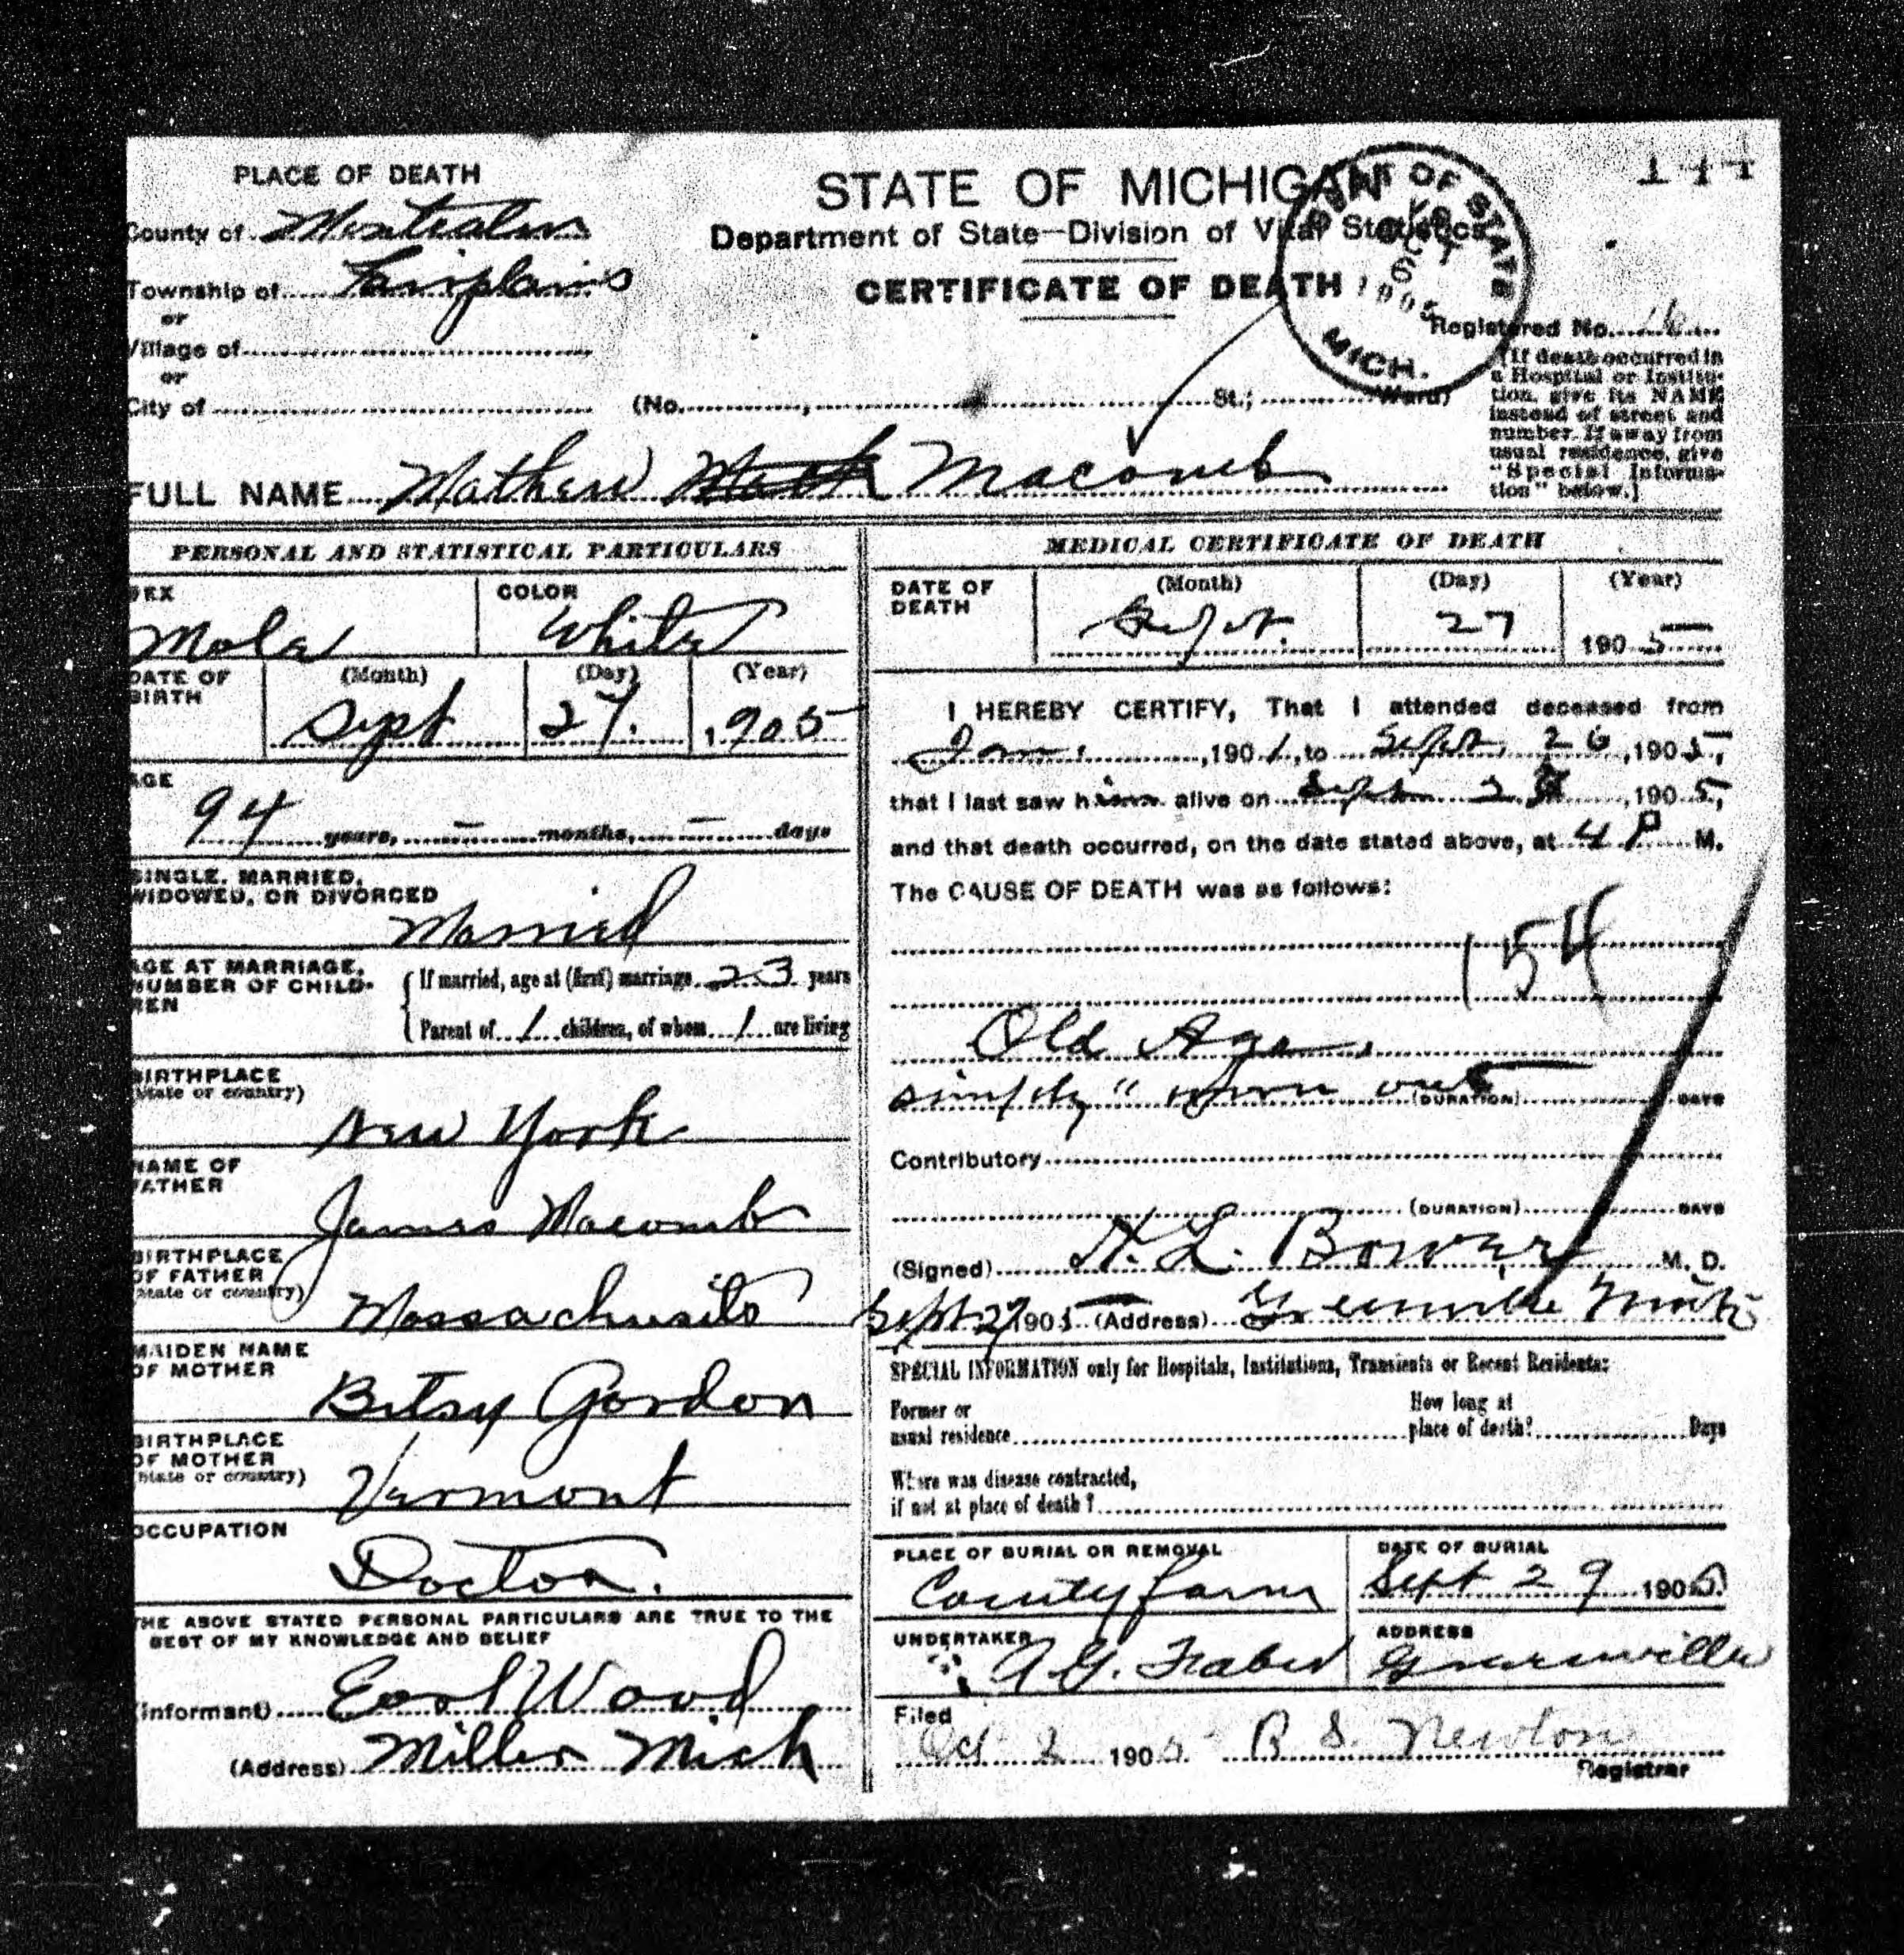 144
PLACE OF DEATH
County of Montcalm
Township of Fairplains
or
Village of
or
City of
STATE OF MICHIGAN
Department of State—Division of Vital Statistics
CERTIFICATE OF DEATH
OF STATE
OCT
6
1905
MICH.
Registered No. 16
[If death occurred in
a Hospital or Institu-
tion, give its NAME
instead of street and
number. If away from
usual residence, give
"Special Informa-
tion" below.]
(No. , St.; Ward)
FULL NAME Mathew Macomb
PERSONAL AND STATISTICAL PARTICULARS
SEX
Male
COLOR
White
DATE OF
BIRTH
(Month) (Day) (Year)
Sept 27. 1905
AGE
94 years, - months, - days
SINGLE, MARRIED,
WIDOWED, OR DIVORCED
Married
AGE AT MARRIAGE,
NUMBER OF CHILD-
REN
If married, age at (first) marriage 23 years
Parent of 1 children, of whom 1 are living
BIRTHPLACE
(State or country)
New York
NAME OF
FATHER
James Macomb
BIRTHPLACE
OF FATHER
(State or country)
Massachusits
MAIDEN NAME
OF MOTHER
Betsy Gordon
BIRTHPLACE
OF MOTHER
(State or country)
Vermont
OCCUPATION
Doctor.
THE ABOVE STATED PERSONAL PARTICULARS ARE TRUE TO THE
BEST OF MY KNOWLEDGE AND BELIEF
(Informant) Earl Wood
(Address) Miller Mich
MEDICAL CERTIFICATE OF DEATH
DATE OF
DEATH
(Month) (Day) (Year)
Sept. 27 1905
I HEREBY CERTIFY, That I attended deceased from
Jan. , 1901, to Sept. 26, 1905,
that I last saw him alive on Sept 2 , 1905,
and that death occurred, on the date stated above, at 4 P M.
The CAUSE OF DEATH was as follows:
154
Old Age.
simply "worn out
(DURATION) DAYS
Contributory
(DURATION) DAYS
(Signed) H. L. Bower M. D.
Sept 27 1905 (Address) Greenville Mich
SPECIAL INFORMATION only for Hospitals, Institutions, Transients or Recent Residents:
Former or
usual residence
How long at
place of death? Days
Where was disease contracted,
if not at place of death?
PLACE OF BURIAL OR REMOVAL
County farm
DATE OF BURIAL
Sept 29 1905
UNDERTAKER
A. G. Faber
ADDRESS
Greenville
Filed
Oct 2 1905 R S. Newton
Registrar